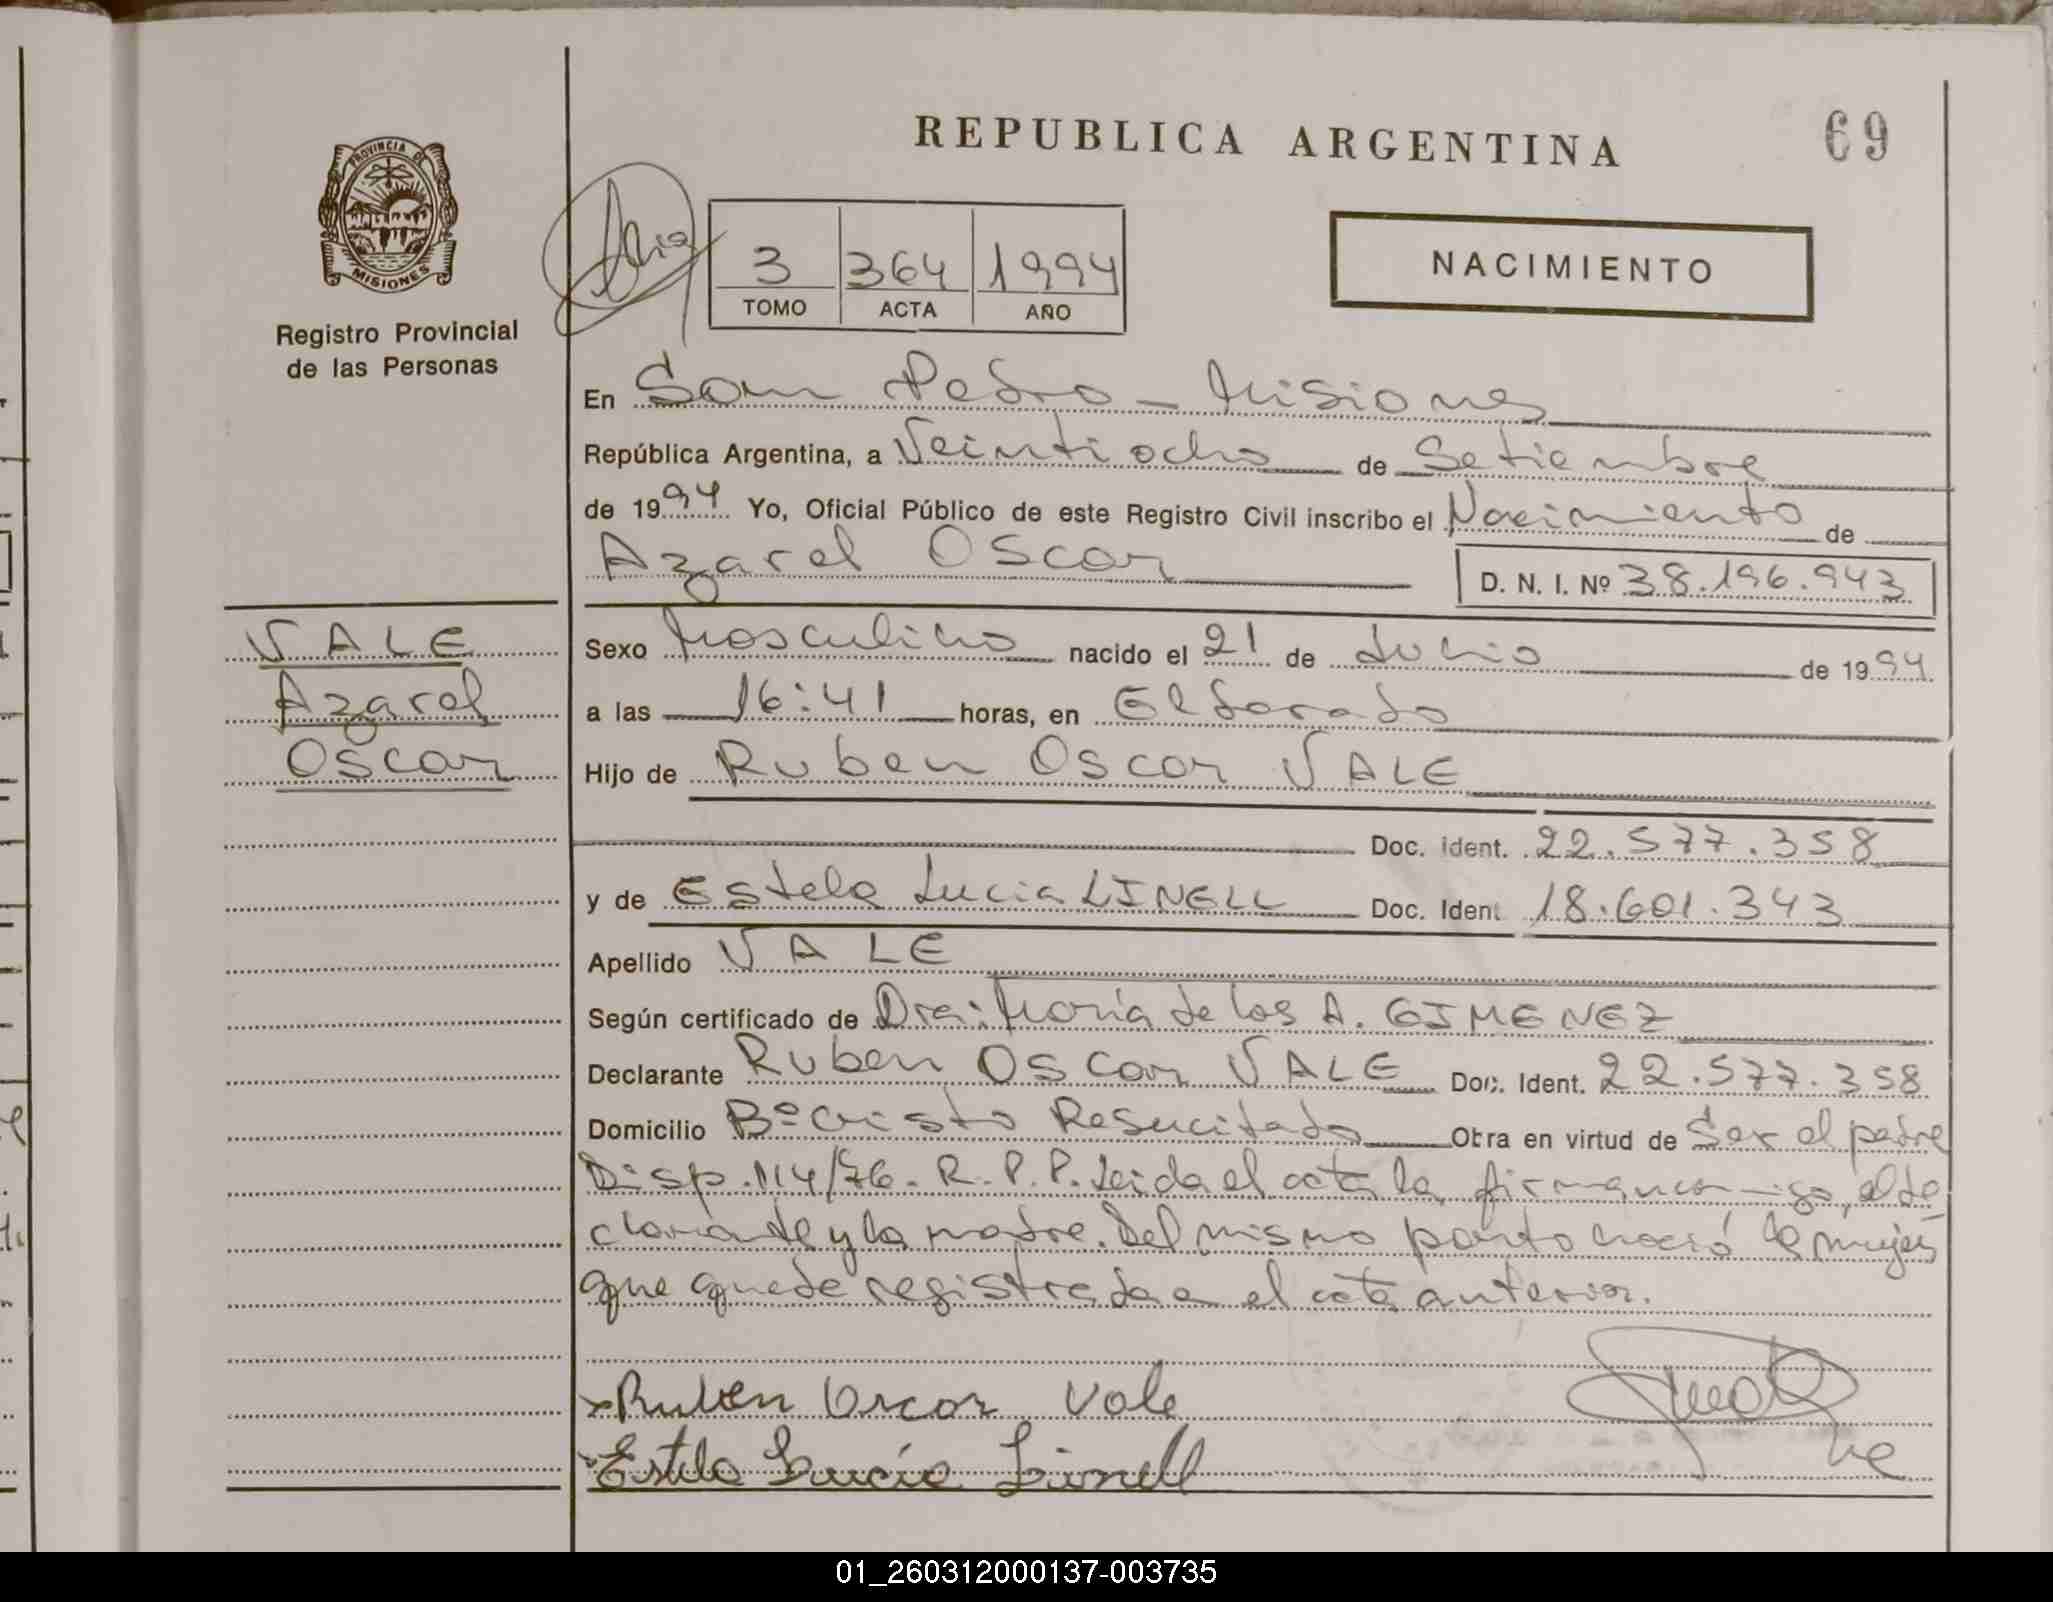 REPUBLICA ARGENTINA
69
PROVINCIA DE
MISIONES
Registro Provincial
de las Personas
3 364 1994
TOMO ACTA AÑO
NACIMIENTO
En San Pedro - Misiones
República Argentina, a Veintiocho de Setiembre
de 1994 Yo, Oficial Público de este Registro Civil inscribo el Nacimiento de
Azarel Oscar D. N. I. Nº 38.196.943
VALE
Azarel
Oscar
Sexo Masculino nacido el 21 de Julio de 1994
a las 16:41 horas, en Eldorado
Hijo de Ruben Oscar VALE
Doc. ident. 22.577.358
y de Estela Lucia LINELL Doc. Ident 18.601.343
Apellido VALE
Según certificado de Dra: María de los A. GIMENEZ
Declarante Ruben Oscar VALE Doc. Ident. 22.577.358
Domicilio Bº Cristo Resucitado Obra en virtud de Ser el padre
Disp. 114/76. R. P. P. Leida el acta la firman conmigo, el de
clarante y la madre. Del mismo parto nació la mujer
que quede registrada e el acta anterior.
Ruben Oscar Vale
Estela Lucía Linell
01_260312000137-003735